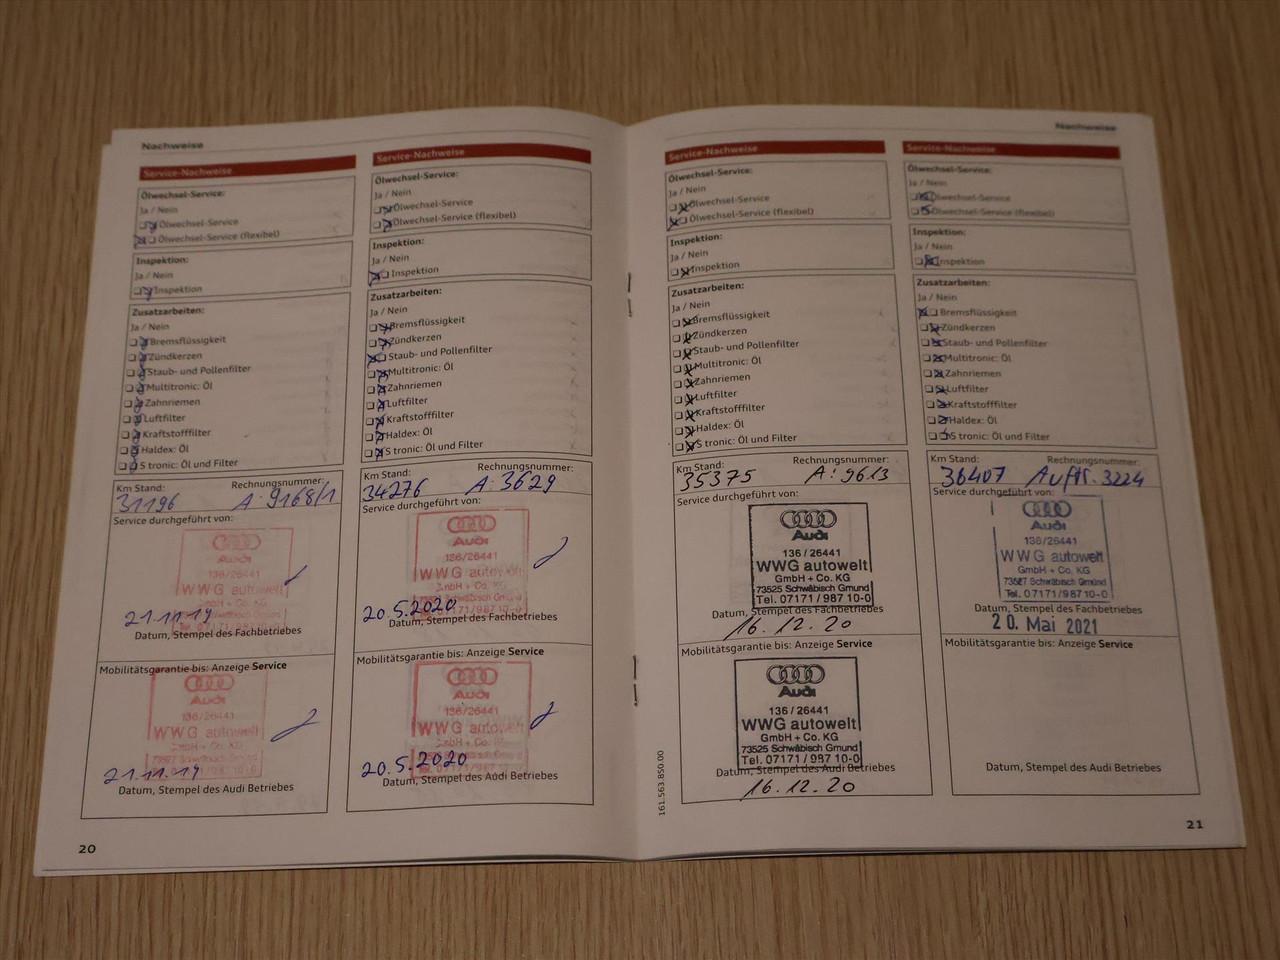 Nachweise
Service-Nachweise
Ölwechsel-Service:
Ja / Nein
Ölwechsel-Service
Ölwechsel-Service (flexibel)
Inspektion:
Ja / Nein
Inspektion
Zusatzarbeiten:
Ja / Nein
Bremsflüssigkeit
Zündkerzen
Staub- und Pollenfilter
Multitronic: Öl
Zahnriemen
Luftfilter
Kraftstofffilter
Haldex: Öl
S tronic: Öl und Filter
Km Stand: Rechnungsnummer:
31196 A: 9168/1
Service durchgeführt von:
Audi
136/26441
WWG autowelt
GmbH + Co. KG
Tel. 07171/987 10-0
21.11.19
Datum, Stempel des Fachbetriebes
Mobilitätsgarantie bis: Anzeige Service
Audi
136/26441
WWG autowelt
GmbH + Co. KG
73527 Schwäbisch Gmünd
Tel. 07171/987 10-0
21.11.19
Datum, Stempel des Audi Betriebes
20
Service-Nachweise
Ölwechsel-Service:
Ja / Nein
Ölwechsel-Service
Ölwechsel-Service (flexibel)
Inspektion:
Ja / Nein
Inspektion
Zusatzarbeiten:
Ja / Nein
Bremsflüssigkeit
Zündkerzen
Staub- und Pollenfilter
Multitronic: Öl
Zahnriemen
Luftfilter
Kraftstofffilter
Haldex: Öl
S tronic: Öl und Filter
Km Stand: Rechnungsnummer:
34276 A: 3629
Service durchgeführt von:
Audi
136/26441
WWG autowelt
GmbH + Co. KG
07171/987 10-0
20.5.2020
Datum, Stempel des Fachbetriebes
Mobilitätsgarantie bis: Anzeige Service
Audi
136/26441
WWG autowelt
GmbH + Co. KG
20.5.2020
Datum, Stempel des Audi Betriebes
Nachweise
Service-Nachweise
Ölwechsel-Service:
Ja / Nein
Ölwechsel-Service
Ölwechsel-Service (flexibel)
Inspektion:
Ja / Nein
Inspektion
Zusatzarbeiten:
Ja / Nein
Bremsflüssigkeit
Zündkerzen
Staub- und Pollenfilter
Multitronic: Öl
Zahnriemen
Luftfilter
Kraftstofffilter
Haldex: Öl
S tronic: Öl und Filter
Km Stand: Rechnungsnummer:
35375 A: 9613
Service durchgeführt von:
Audi
136/26441
WWG autowelt
GmbH + Co. KG
73525 Schwäbisch Gmund
Tel. 07171/987 10-0
Datum, Stempel des Fachbetriebes
16.12.20
Mobilitätsgarantie bis: Anzeige Service
Audi
136/26441
WWG autowelt
GmbH + Co. KG
73525 Schwäbisch Gmund
Tel. 07171/987 10-0
Datum, Stempel des Audi Betriebes
16.12.20
161.563.850.00
Service-Nachweise
Ölwechsel-Service:
Ja / Nein
Ölwechsel-Service
Ölwechsel-Service (flexibel)
Inspektion:
Ja / Nein
Inspektion
Zusatzarbeiten:
Ja / Nein
Bremsflüssigkeit
Zündkerzen
Staub- und Pollenfilter
Multitronic: Öl
Zahnriemen
Luftfilter
Kraftstofffilter
Haldex: Öl
S tronic: Öl und Filter
Km Stand: Rechnungsnummer:
36407 Auftr. 3224
Service durchgeführt von:
Audi
136/26441
WWG autowelt
GmbH + Co. KG
73527 Schwäbisch Gmünd
Tel. 07171/987 10-0
Datum, Stempel des Fachbetriebes
20. Mai 2021
Mobilitätsgarantie bis: Anzeige Service
Datum, Stempel des Audi Betriebes
21